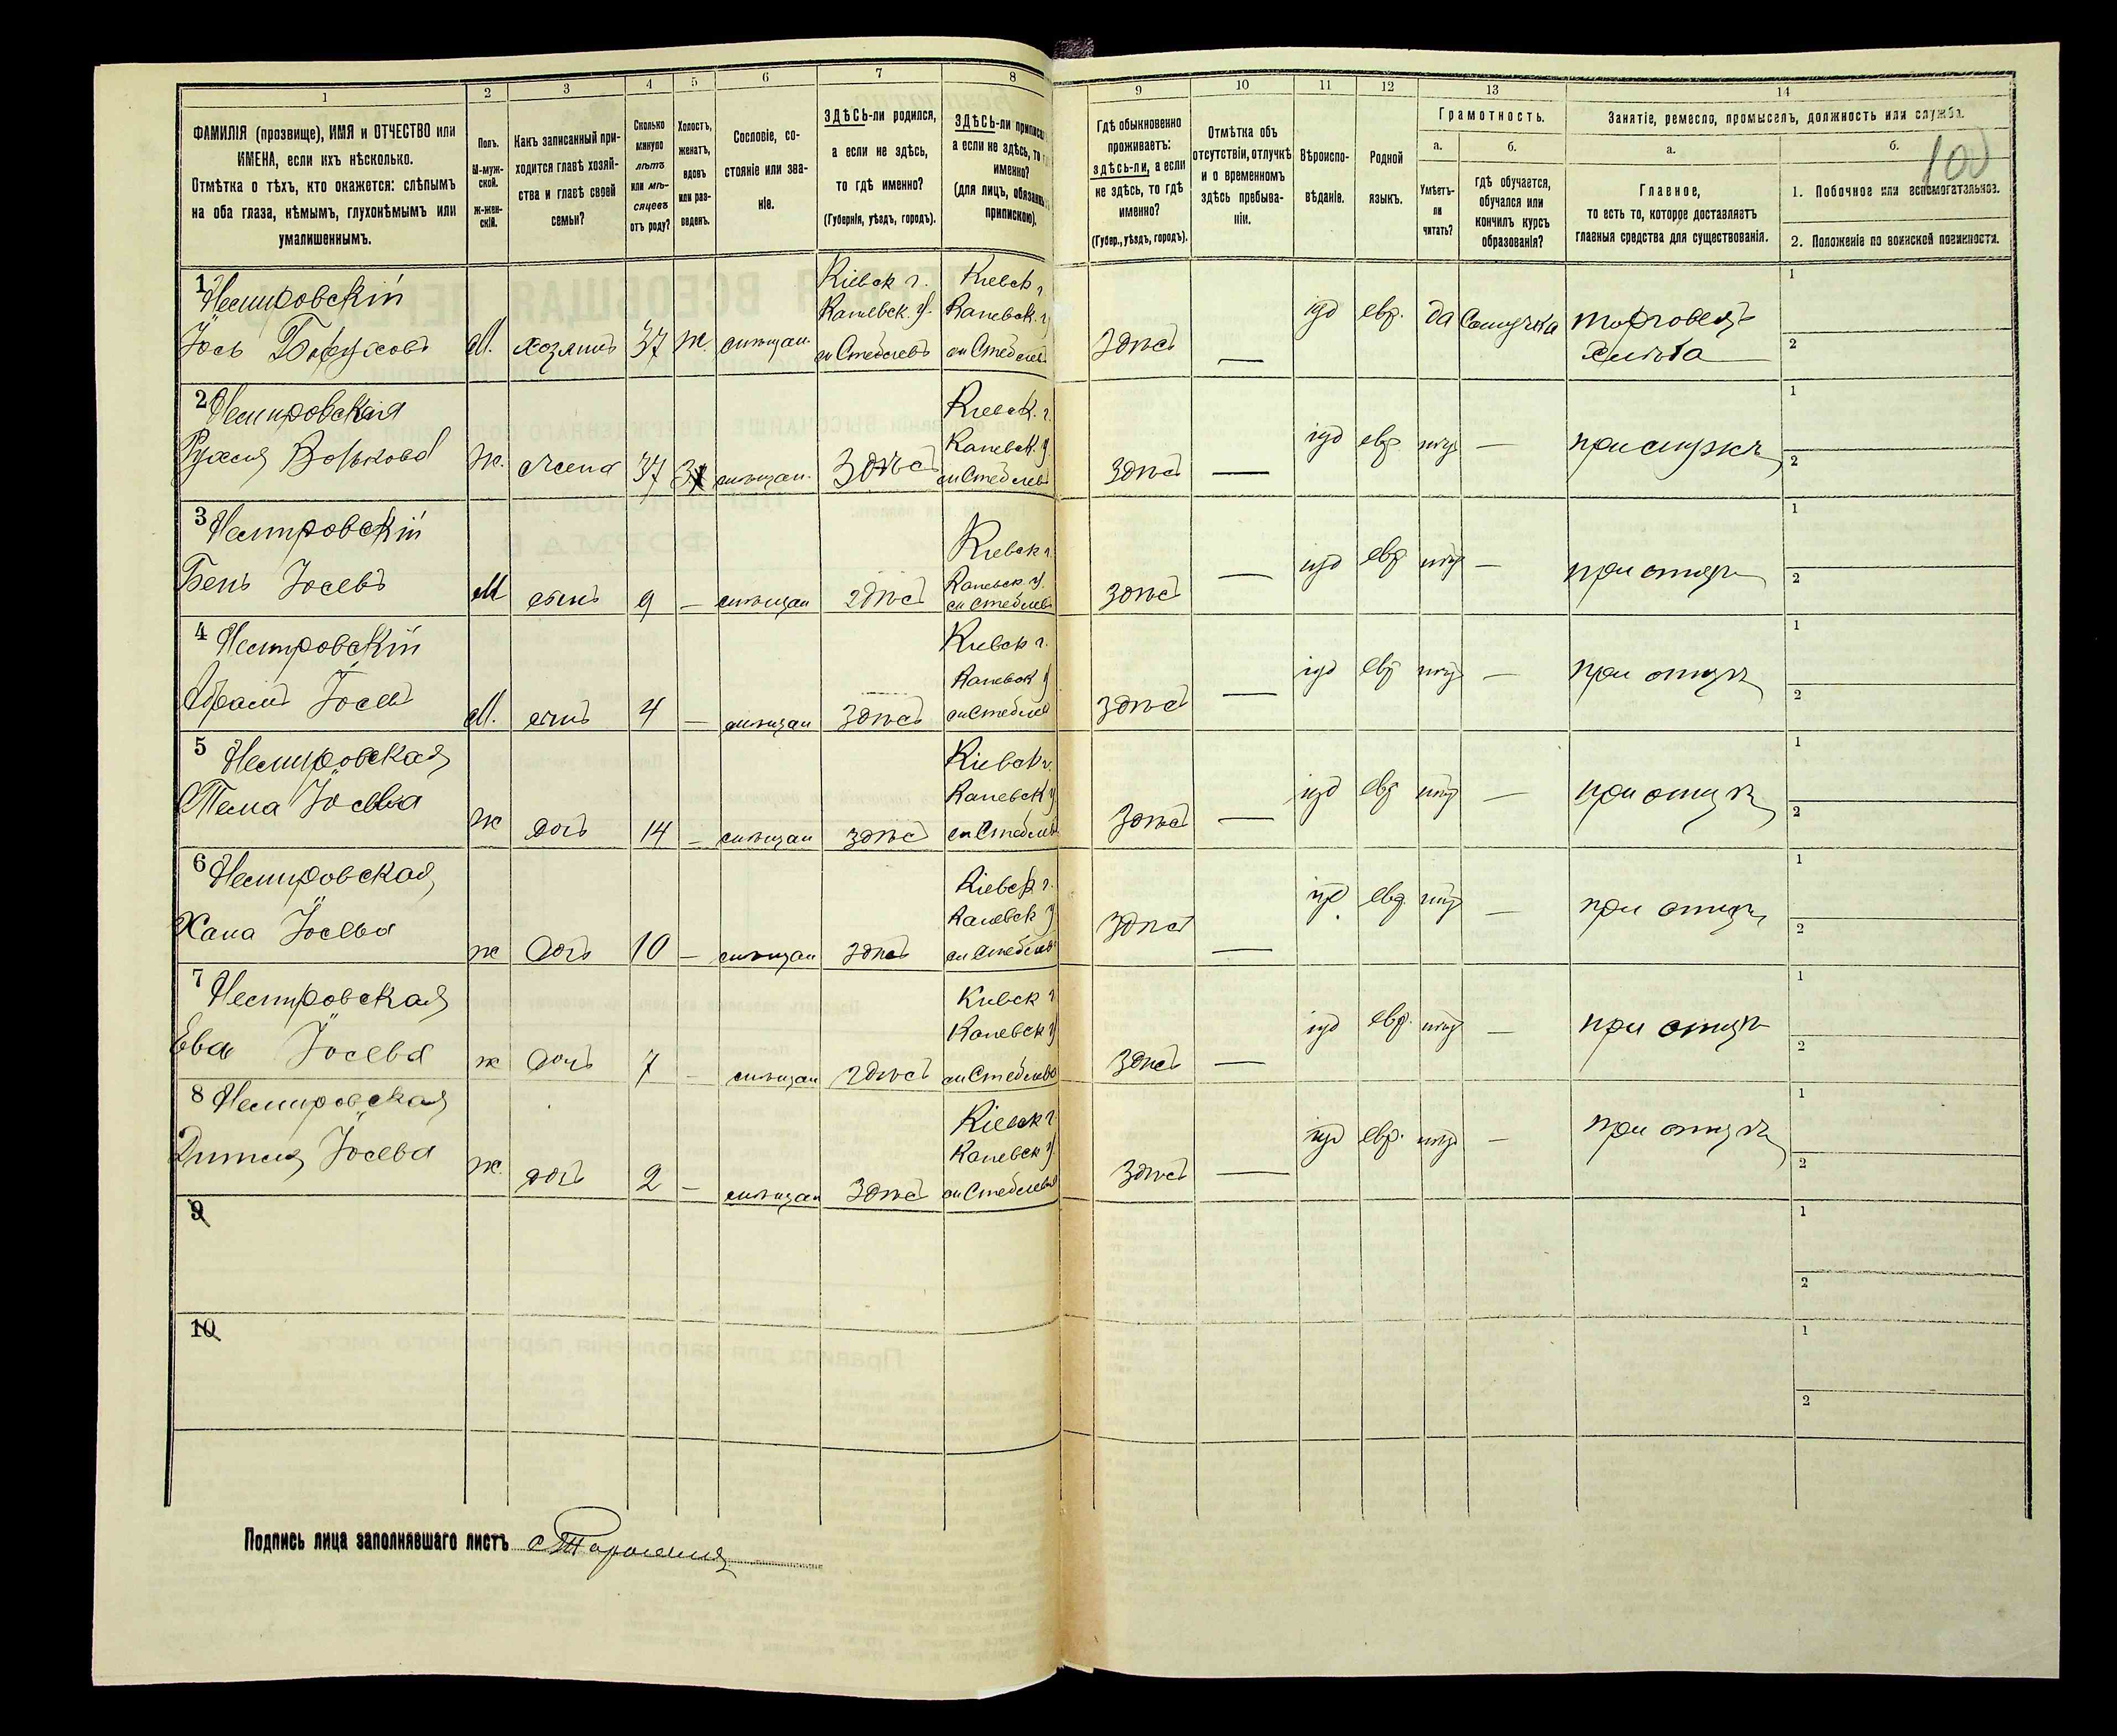 1
2
3
4
5
6
7
8
9
10
11
12
13
14
ФАМИЛІЯ (прозвище), ИМЯ и ОТЧЕСТВО или
ИМЕНА, если ихъ нѣсколько.
Отмѣтка о тѣхъ, кто окажется: слѣпымъ
на оба глаза, нѣмымъ, глухонѣмымъ или
умалишеннымъ.
Полъ.
М-муж-
ской.
Ж-жен-
скій.
Какъ записанный при-
ходится главѣ хозяй-
ства и главѣ своей
семьи?
Сколько
минуло
лѣтъ
или мѣ-
сяцевъ
отъ роду?
Холостъ,
женатъ,
вдовъ
или раз-
веденъ.
Сословіе, со-
стояніе или зва-
ніе.
ЗДѢСЬ-ли родился,
а если не здѣсь,
то гдѣ именно?
(Губернія, уѣздъ, городъ).
ЗДѢСЬ-ли приписа
а если не здѣсь, то г
именно?
(для лицъ, обязанн
припискою).
Гдѣ обыкновенно
проживаетъ:
здѣсь-ли, а если
не здѣсь, то гдѣ
именно?
(Губер., уѣздъ, городъ).
Отмѣтка объ
отсутствіи, отлучкѣ
и о временномъ
здѣсь пребыва-
ніи.
Вѣроиспо-
вѣданіе.
Родной
языкъ.
Грамотность.
а.
Умѣетъ-
ли
читать?
б.
гдѣ обучается,
обучался или
кончилъ курсъ
образованія?
Занятіе, ремесло, промыселъ, должность или служба.
100
а.
Главное,
то есть то, которое доставляетъ
главныя средства для существованія.
б.
1. Побочное или вспомогательное.
2. Положеніе по воинской повинности.
1 Немировскій
Іось Боруховъ
М. хозяинъ 37 ж. мѣщан. Кіевск г. Каневск. у. м Стеблевъ Кіевск г. Каневск. у м Стеблевъ здѣсь — іуд евр. да Самоучка торговецъ хлѣба 1 2
2 Немировская
Рухля Волькова
Ж. жена 37 мѣщан. здѣсь Кіевск. г. Каневск. у. м Стеблевъ здѣсь — іуд евр нѣтъ — при мужѣ 1 2
3 Немировскій
Бень Іосевъ
М сынъ 9 — мѣщан здѣсь Кіевск г. Каневск у. м Стеблевъ здѣсь — іуд евр нѣтъ — при отцѣ 1 2
4 Немировскій
Абрамъ Іосевъ
М. сынъ 4 — мѣщан здѣсь Кіевск г. Каневск у м Стеблев здѣсь — іуд евр нѣтъ — при отцѣ 1 2
5 Немировская
Тема Іосева
ж дочь 14 — мѣщан здѣсь Кіевск г. Каневск у м Стеблевъ здѣсь — іуд евр нѣтъ — при отцѣ 1 2
6 Немировская
Хана Іосева
ж дочь 10 — мѣщан здѣсь Кіевск г. Каневск у м Стеблевъ здѣсь — іуд евр нѣтъ — при отцѣ 1 2
7 Немировская
Ева Іосева
ж дочь 7 — мѣщан здѣсь Кіевск г Каневск у м Стеблева здѣсь — іуд евр. нѣтъ — при отцѣ 1 2
8 Немировская
Іосева
ж. дочь 2 — мѣщан здѣсь Кіевск г Каневск у м Стеблева здѣсь — іуд евр. нѣтъ — при отцѣ 1 2
9
1
2
10
1
2
Подпись лица заполнявшаго листъ